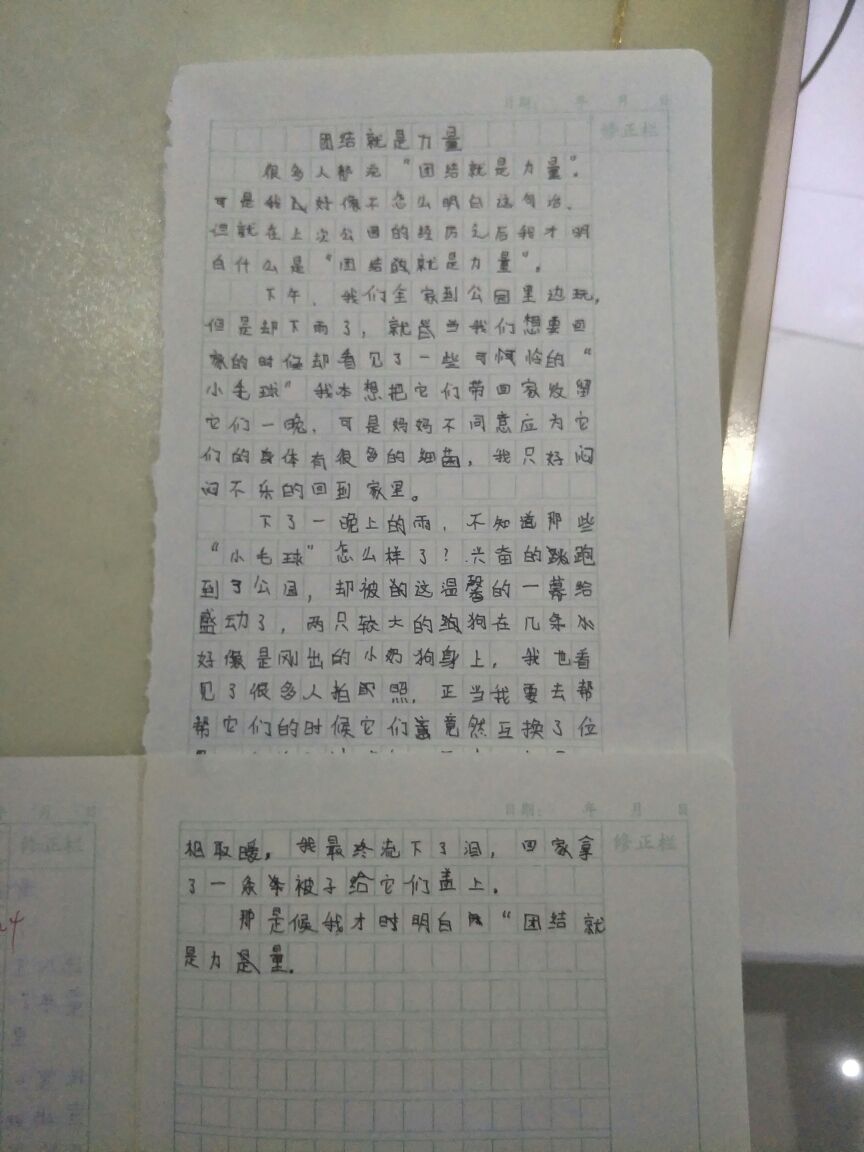 日期： 年 月 日
修正栏
团结就是力量
很多人都说“团结就是力量”。
可是我好像不怎么明白这句话.
但就在上次公园的经历之后我才明
白什么是“团结的就是力量”。
下午，我们全家到公园里边玩，
但是却下雨了，就是当我们想要回
家的时候却看见了一些可怜的“
小毛球”我本想把它们带回家收留
它们一晚，可是妈妈不同意应为它
们的身体有很多的细菌，我只好闷
闷不乐的回到家里。
下了一晚上的雨，不知道那些
“小毛球”怎么样了？兴奋的跳跑
到了公园，却被的这温馨的一幕给
感动了，两只较大的狗狗在几条
好像是刚出的小奶狗身上，我也看
见了很多人拍照，正当我要去帮
帮它们的时候它们竟然互换了位
日期： 年 月 日
修正栏
相取暖，我最终流下了泪，回家拿
了一条被子给它们盖上.
那是候我才时明白“团结就
是力是量.
年 月 日
修正栏